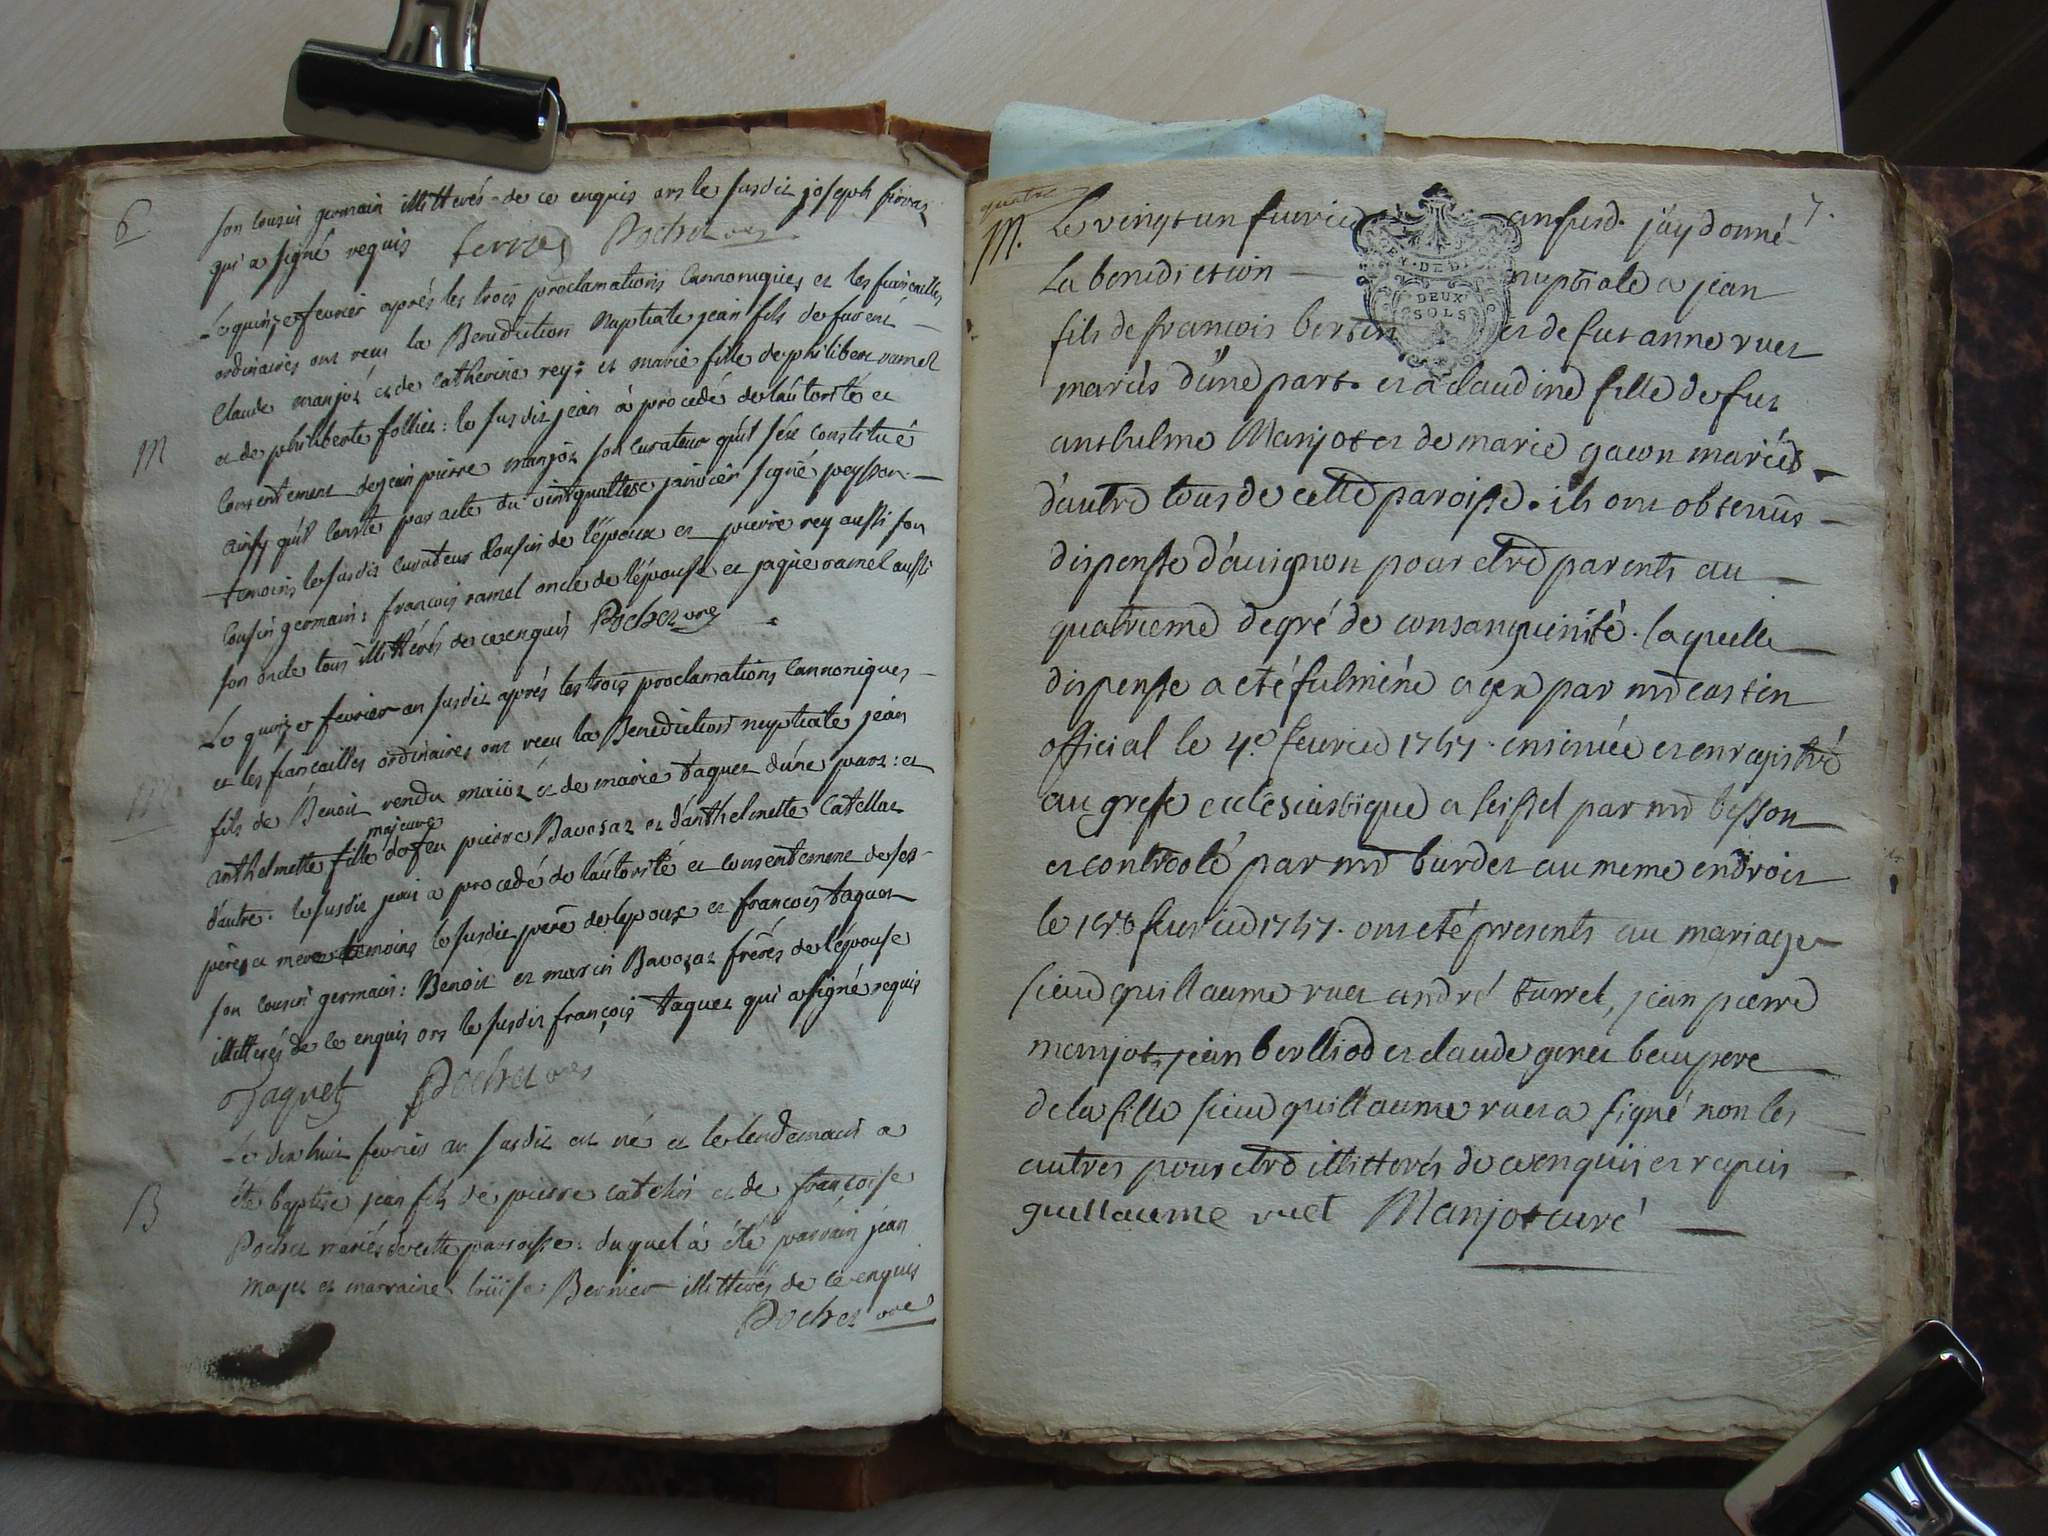 6
son cousin germain illitterés de ce enquis ors le susdit joseph
qui a signé requis Pochet vre
Le quinze fevrier aprés les trois proclamations Cannoniques et les fiancailles
ordinaires ont reçu la Benediction Nuptiale jean fils de fu
Claude manjot et de Catherine rey : et marie fille de philibert ramel
M
et de philiberte folliet : le susdit jean à procedé de l'autorité et
Consentement de jean pierre manjot son curateur qu'il s'est constitué
ainsy qu'il conste par acte du vintquattre janvier signé peysson
temoins le susdit curateur Cousin de l'époux et pierre rey aussi son
Cousin germain : francois ramel oncle de l'épouse et jaque ramel aussi
son oncle tous illitterés de ce enquis Pochet vre
Le quinze fevrier an susdit aprés les trois proclamations Cannoniques
et les fiancailles ordinaires ont reçu la Benediction nuptiale jean
M
fils de Benoit rendu et de marie taguet d'une part : et
majeure
anthelmette fille de feu pierre Bavozat et d'anthelmette Catellat
d'autre . le susdit jean a procedé de l'autorité et consentement de ses
père et mere temoins le susdit père de l'epoux et francois taguet
son cousin germain : Benoit et marin Bavozat frères de l'épouse
illitterés de ce enquis ors le susdit françois taguet qui a signé requis
Taguet Pochet vre
Le dixhuit fevrier an susdit est né et le lendemain a
été baptisé jean fils de pierre catelin et de francoise
B
Pochet mariés de cette paroisse : duquel à été parrain jean
mayet et marraine loüise Bernier illitterés de ce enquis
Pochet vre
quatre
7.
M. Le vingt un fevrier an susd. j'ay donné
La benediction nuptiale a jean
DEUX
SOLS
fils de francois bertin et de fut anne ruet
mariés d'une part . et a claudine fille de fut
anthelme Manjot et de marie gacon mariés
d'autre tous de cette paroisse . ils ont obtenus
dispense d'avignon pour etre parents au
quatrieme degré de consanguinité . laquelle
dispense a eté fulminé a gex par mr castin
official le 4e fevrier 1747 . ensinuée et enregistré
au grefe eclesiastique a seissel par mr besson
et controlé par mr burdet au meme endroit
le 16e fevrier 1747 . ont eté presents au mariage
sieur guillaume ruet andré turrel, jean pierre
manjot, jean berlliod et claude genet beaupere
de la fille sieur guillaume ruet a signé non les
autres pour etre illitterés de ce enquis et requis
guillaume ruet Manjot curé